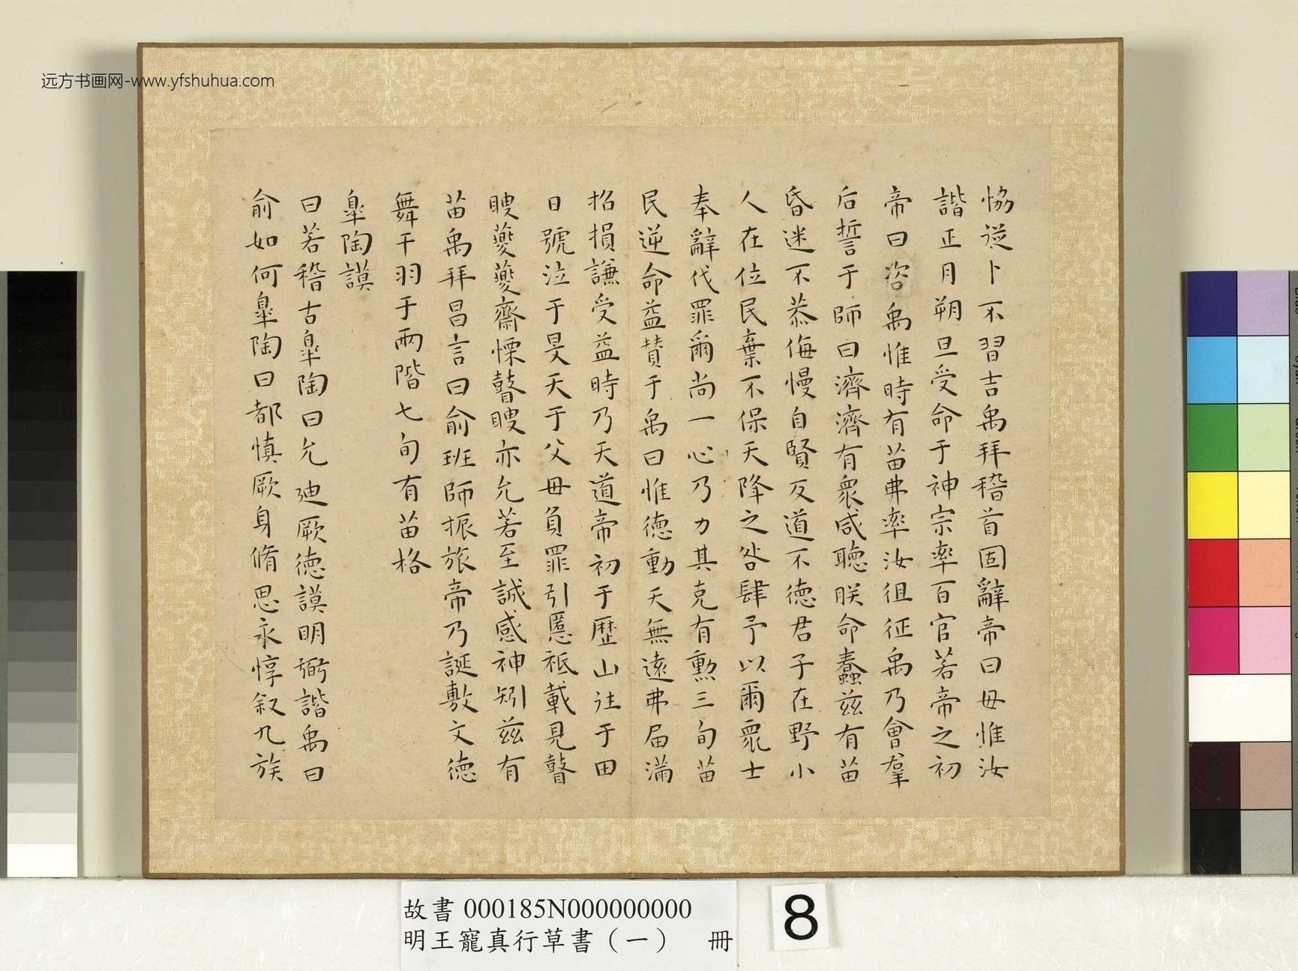 远方书画网-www.yfshuhua.com
恊從卜不習吉禹拜稽首固辭帝曰毋惟汝
諧正月朔旦受命于神宗率百官若帝之初
帝曰咨禹惟時有苗弗率汝徂征禹乃會羣
后誓于師曰濟濟有衆咸聽朕命蠢兹有苗
昏迷不恭侮慢自賢反道不德君子在野小
人在位民棄不保天降之咎肆予以爾衆士
奉辭伐罪爾尚一心乃力其克有勳三旬苗
民逆命益贊于禹曰惟德動天無遠弗届滿
招損謙受益時乃天道帝初于歷山往于田
日號泣于旻天于父母負罪引慝祗載見瞽
瞍夔夔齋慄瞽瞍亦允若至誠感神矧兹有
苗禹拜昌言曰俞班師振旅帝乃誕敷文德
舞干羽于兩階七旬有苗格
臯陶謨
曰若稽古臯陶曰允迪厥德謨明弼諧禹曰
俞如何臯陶曰都慎厥身脩思永惇叙九族
故書 000185N000000000
明王寵真行草書（一） 冊
8